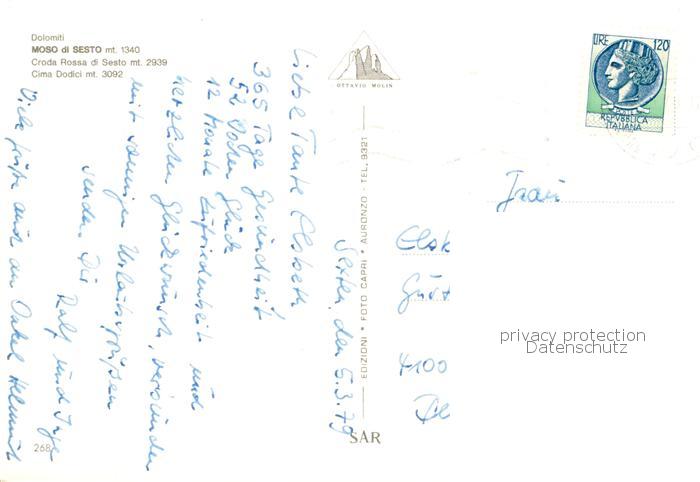 Dolomiti
MOSO di SESTO mt. 1340
Croda Rossa di Sesto mt. 2939
Cima Dodici mt. 3092
OTTAVIO MOLIN
LIRE 120
POSTE
REPVBBLICA
ITALIANA
Sexten, den 5.3.79
Liebe Tante Elsbeth
365 Tage Gesundheit
52 Wochen Glück
12 Monate Zufriedenheit und
herzlichen Glückwunsch, verbunden
mit sonnigen Urlaubsgrüßen
senden Dir
Ralf und Inge
Viele Grüße auch an Onkel Helmut
EDIZIONI * FOTO CAPRI * AURONZO - TEL. 9321
SAR
268
Frau
Elsb
4100
privacy protection
Datenschutz